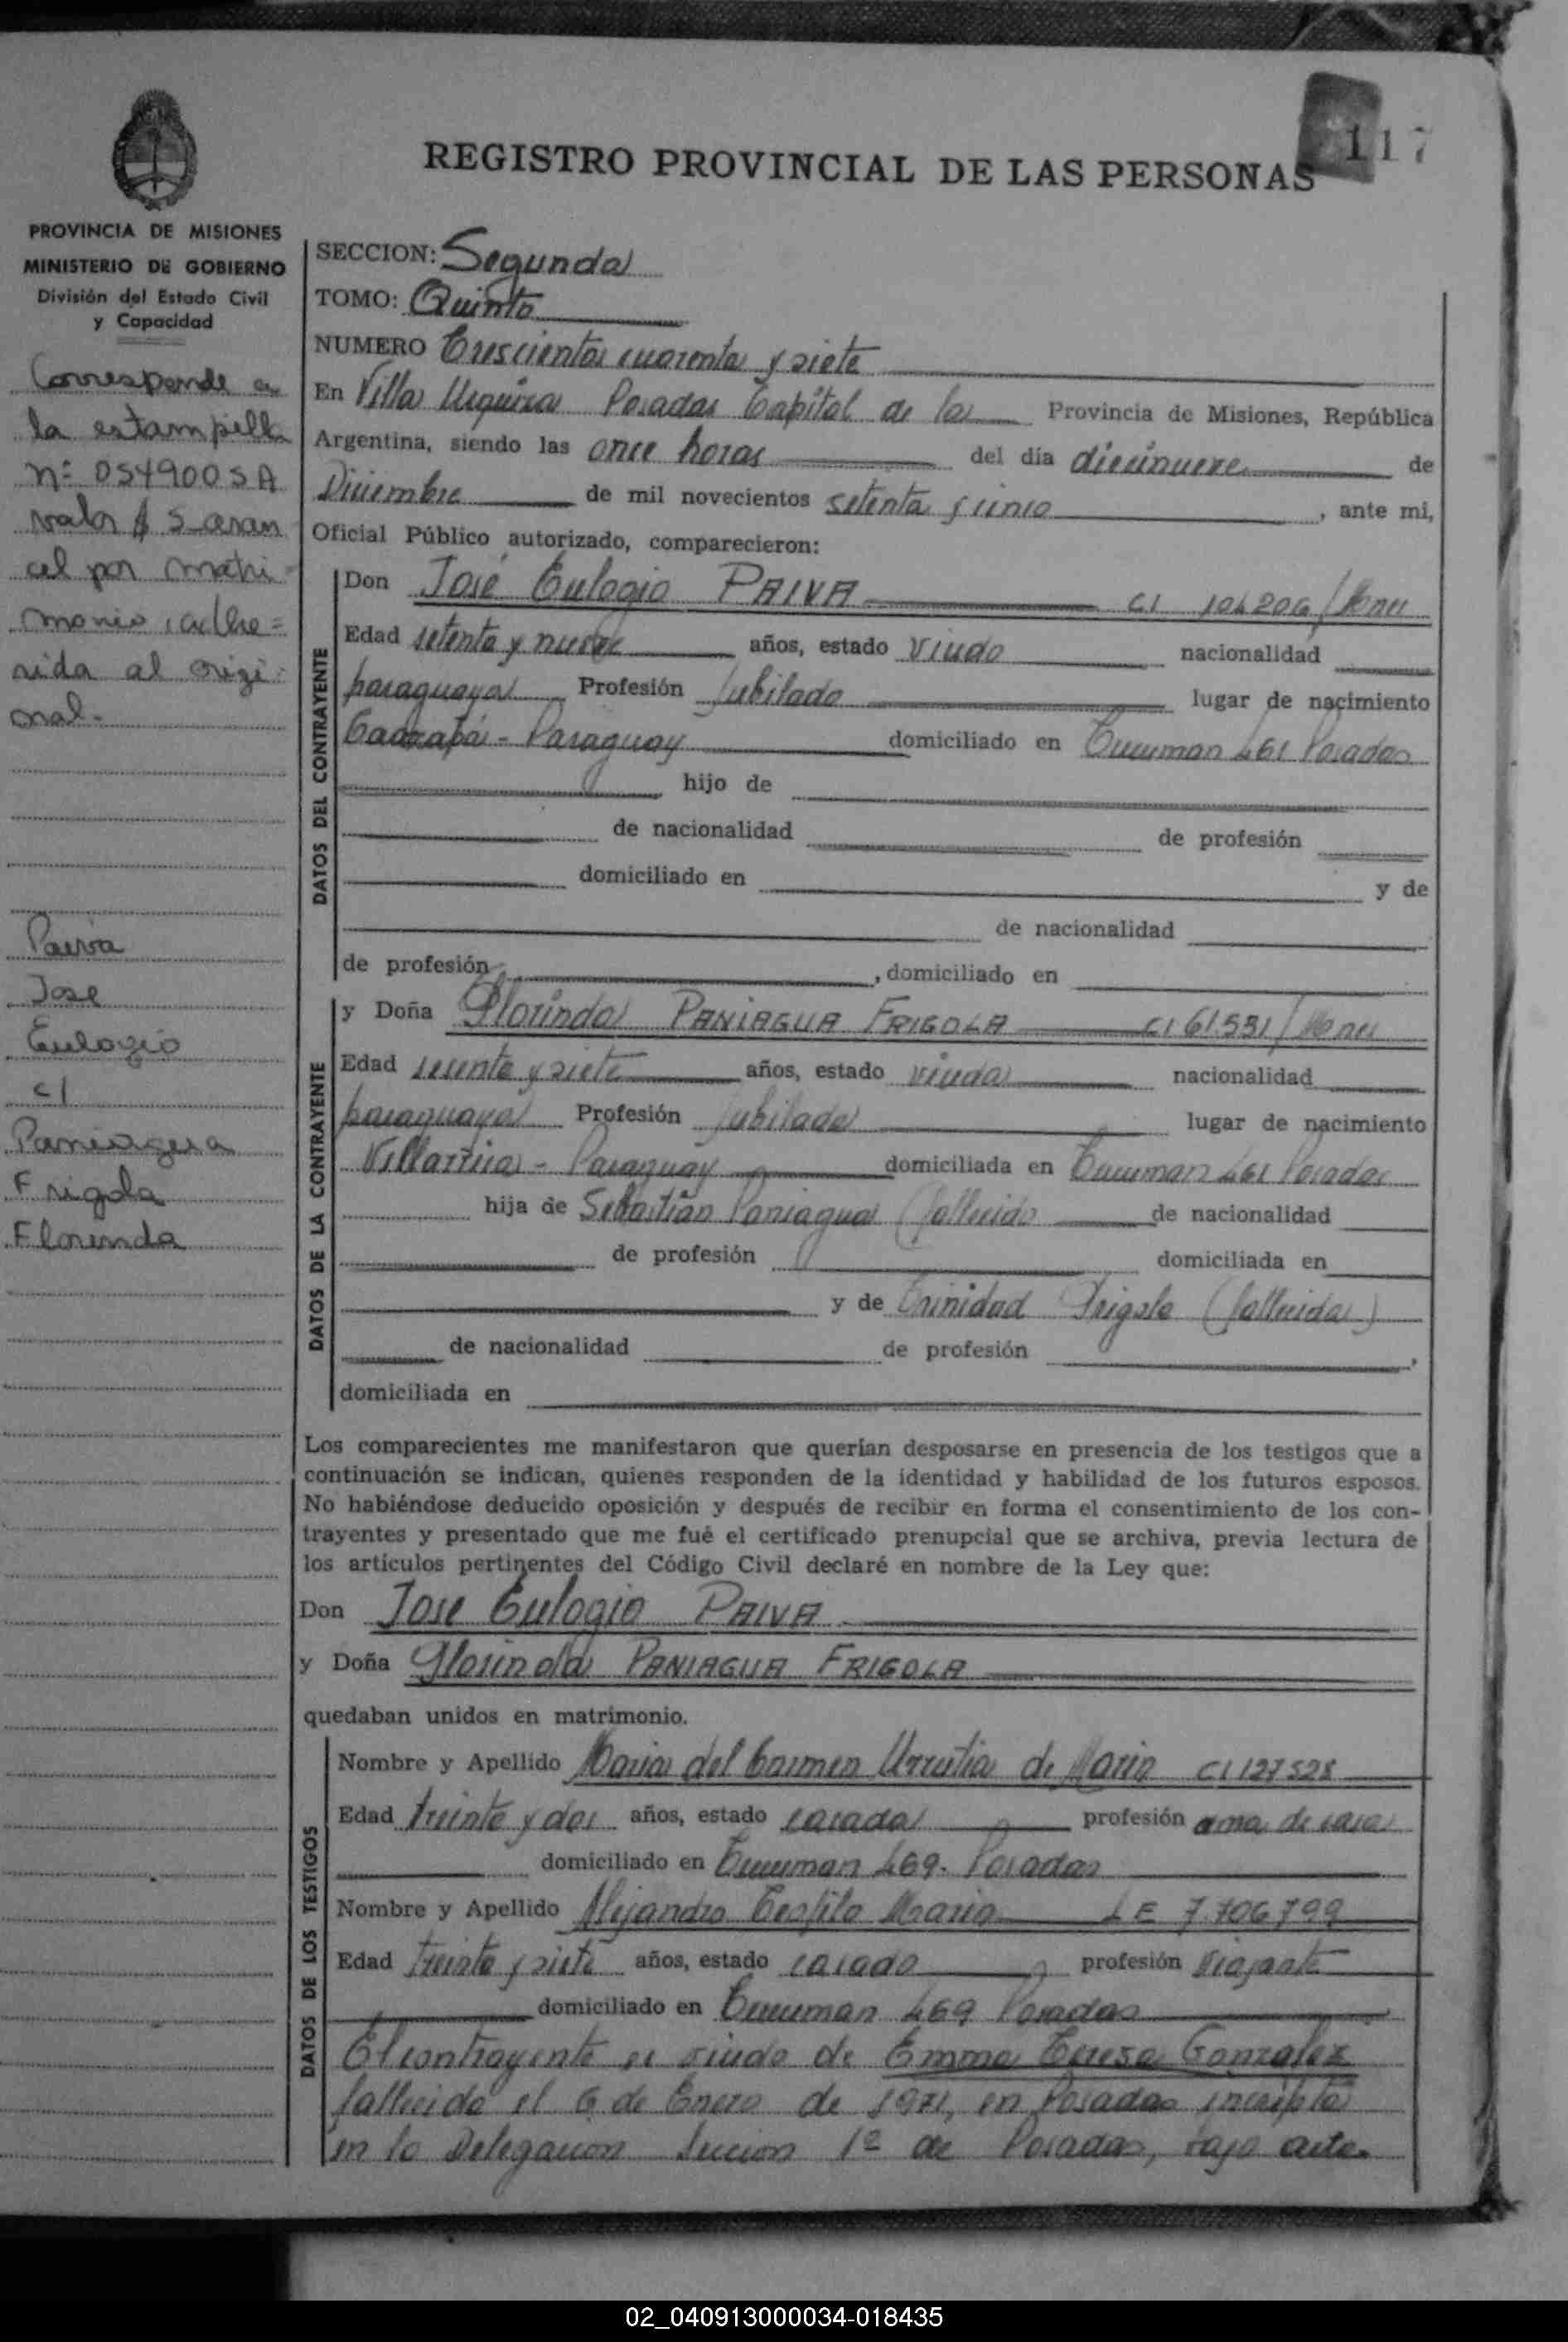 117
REGISTRO PROVINCIAL DE LAS PERSONAS
PROVINCIA DE MISIONES
MINISTERIO DE GOBIERNO
División del Estado Civil
y Capacidad
Corresponde a
la estampilla
nº 0549005A
valor $ 5 aran
cel por matri
monio, adhe=
rida al origi
nal.
Paiva
Jose
Eulogio
c/
Paniagua
Frigola
Florinda
SECCION: Segunda
TOMO: Quinto
NUMERO Trescientos cuarenta y siete
En Villa Urquiza Posadas Capital de la Provincia de Misiones, República
Argentina, siendo las once horas del día diecinueve de
Diciembre de mil novecientos setenta y cinco, ante mi,
Oficial Público autorizado, comparecieron:
DATOS DEL CONTRAYENTE
Don José Eulogio PAIVA CI 104206/
Edad setenta y nueve años, estado Viudo nacionalidad
paraguaya Profesión Jubilado lugar de nacimiento
Caazapá - Paraguay domiciliado en Tucuman 461 Posadas
hijo de
de nacionalidad de profesión
domiciliado en y de
de nacionalidad
de profesión , domiciliado en
DATOS DE LA CONTRAYENTE
y Doña Florinda PANIAGUA FRIGOLA CI 61.551/
Edad sesenta y siete años, estado viuda nacionalidad
paraguaya Profesión Jubilada lugar de nacimiento
Villarrica - Paraguay domiciliada en Tucuman 461 Posadas
hija de Sebastián Paniagua (fallecido de nacionalidad
de profesión domiciliada en
y de Trinidad Frigola (fallecida)
de nacionalidad de profesión ,
domiciliada en
Los comparecientes me manifestaron que querían desposarse en presencia de los testigos que a
continuación se indican, quienes responden de la identidad y habilidad de los futuros esposos.
No habiéndose deducido oposición y después de recibir en forma el consentimiento de los con-
trayentes y presentado que me fué el certificado prenupcial que se archiva, previa lectura de
los artículos pertinentes del Código Civil declaré en nombre de la Ley que:
Don Jose Eulogio PAIVA
y Doña Florinda PANIAGUA FRIGOLA
quedaban unidos en matrimonio.
DATOS DE LOS TESTIGOS
Nombre y Apellido Maria del Carmen Urrutia de Marin CI 127528
Edad treinta y dos años, estado casada profesión ama de casa
domiciliado en Tucuman 469. Posadas
Nombre y Apellido Alejandro Teofilo Marin LE 7.706.799
Edad treinta y siete años, estado casado profesión Viajante
domiciliado en Tucuman 469 Posadas
El contrayente es viudo de Emma Teresa Gonzalez
fallecida el 6 de Enero de 1971, en Posadas inscripta
en la Delegacion Seccion 1ª de Posadas, bajo acta
02_040913000034-018435